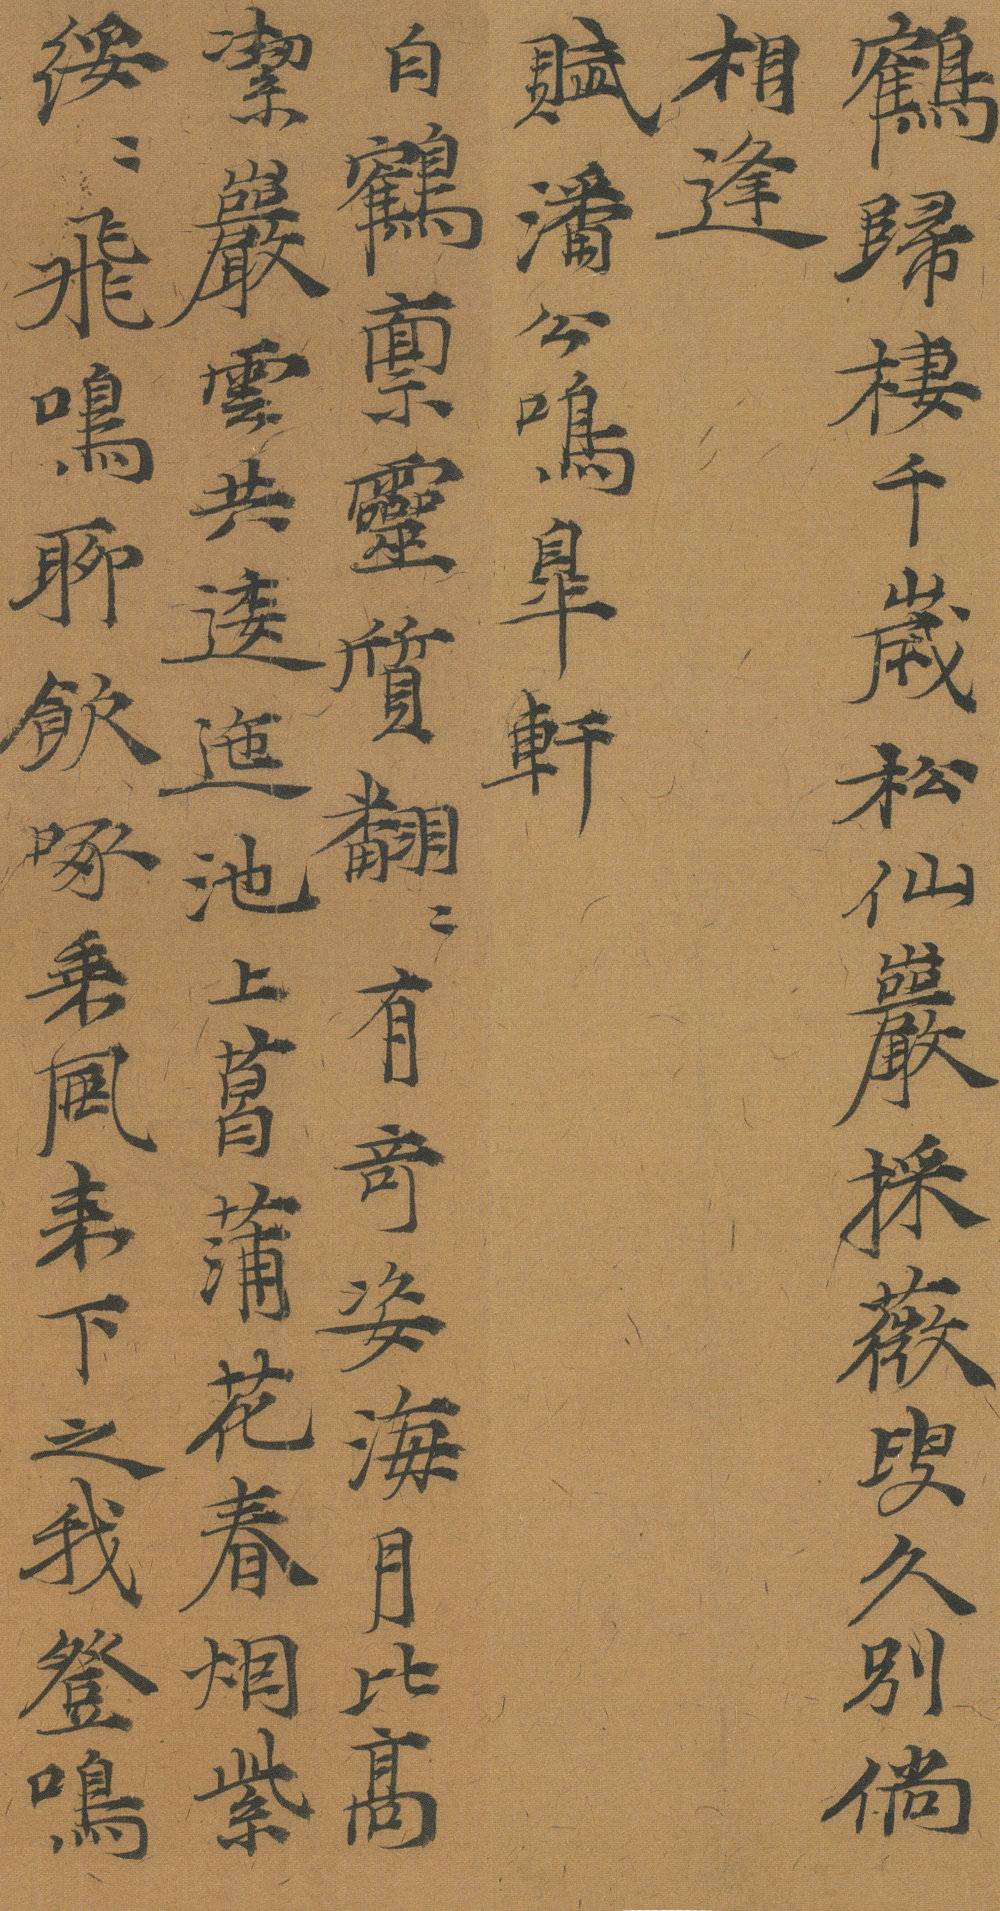 鶴歸棲千歲松仙巖採薇叟久別倘
相逢
賦潘公鳴皐軒
白鶴稟靈質翻〻有奇姿海月比高
潔巖雲共逶迤池上菖蒲花春烟紫
綏〻飛鳴聊飲啄乗風来下之我登鳴